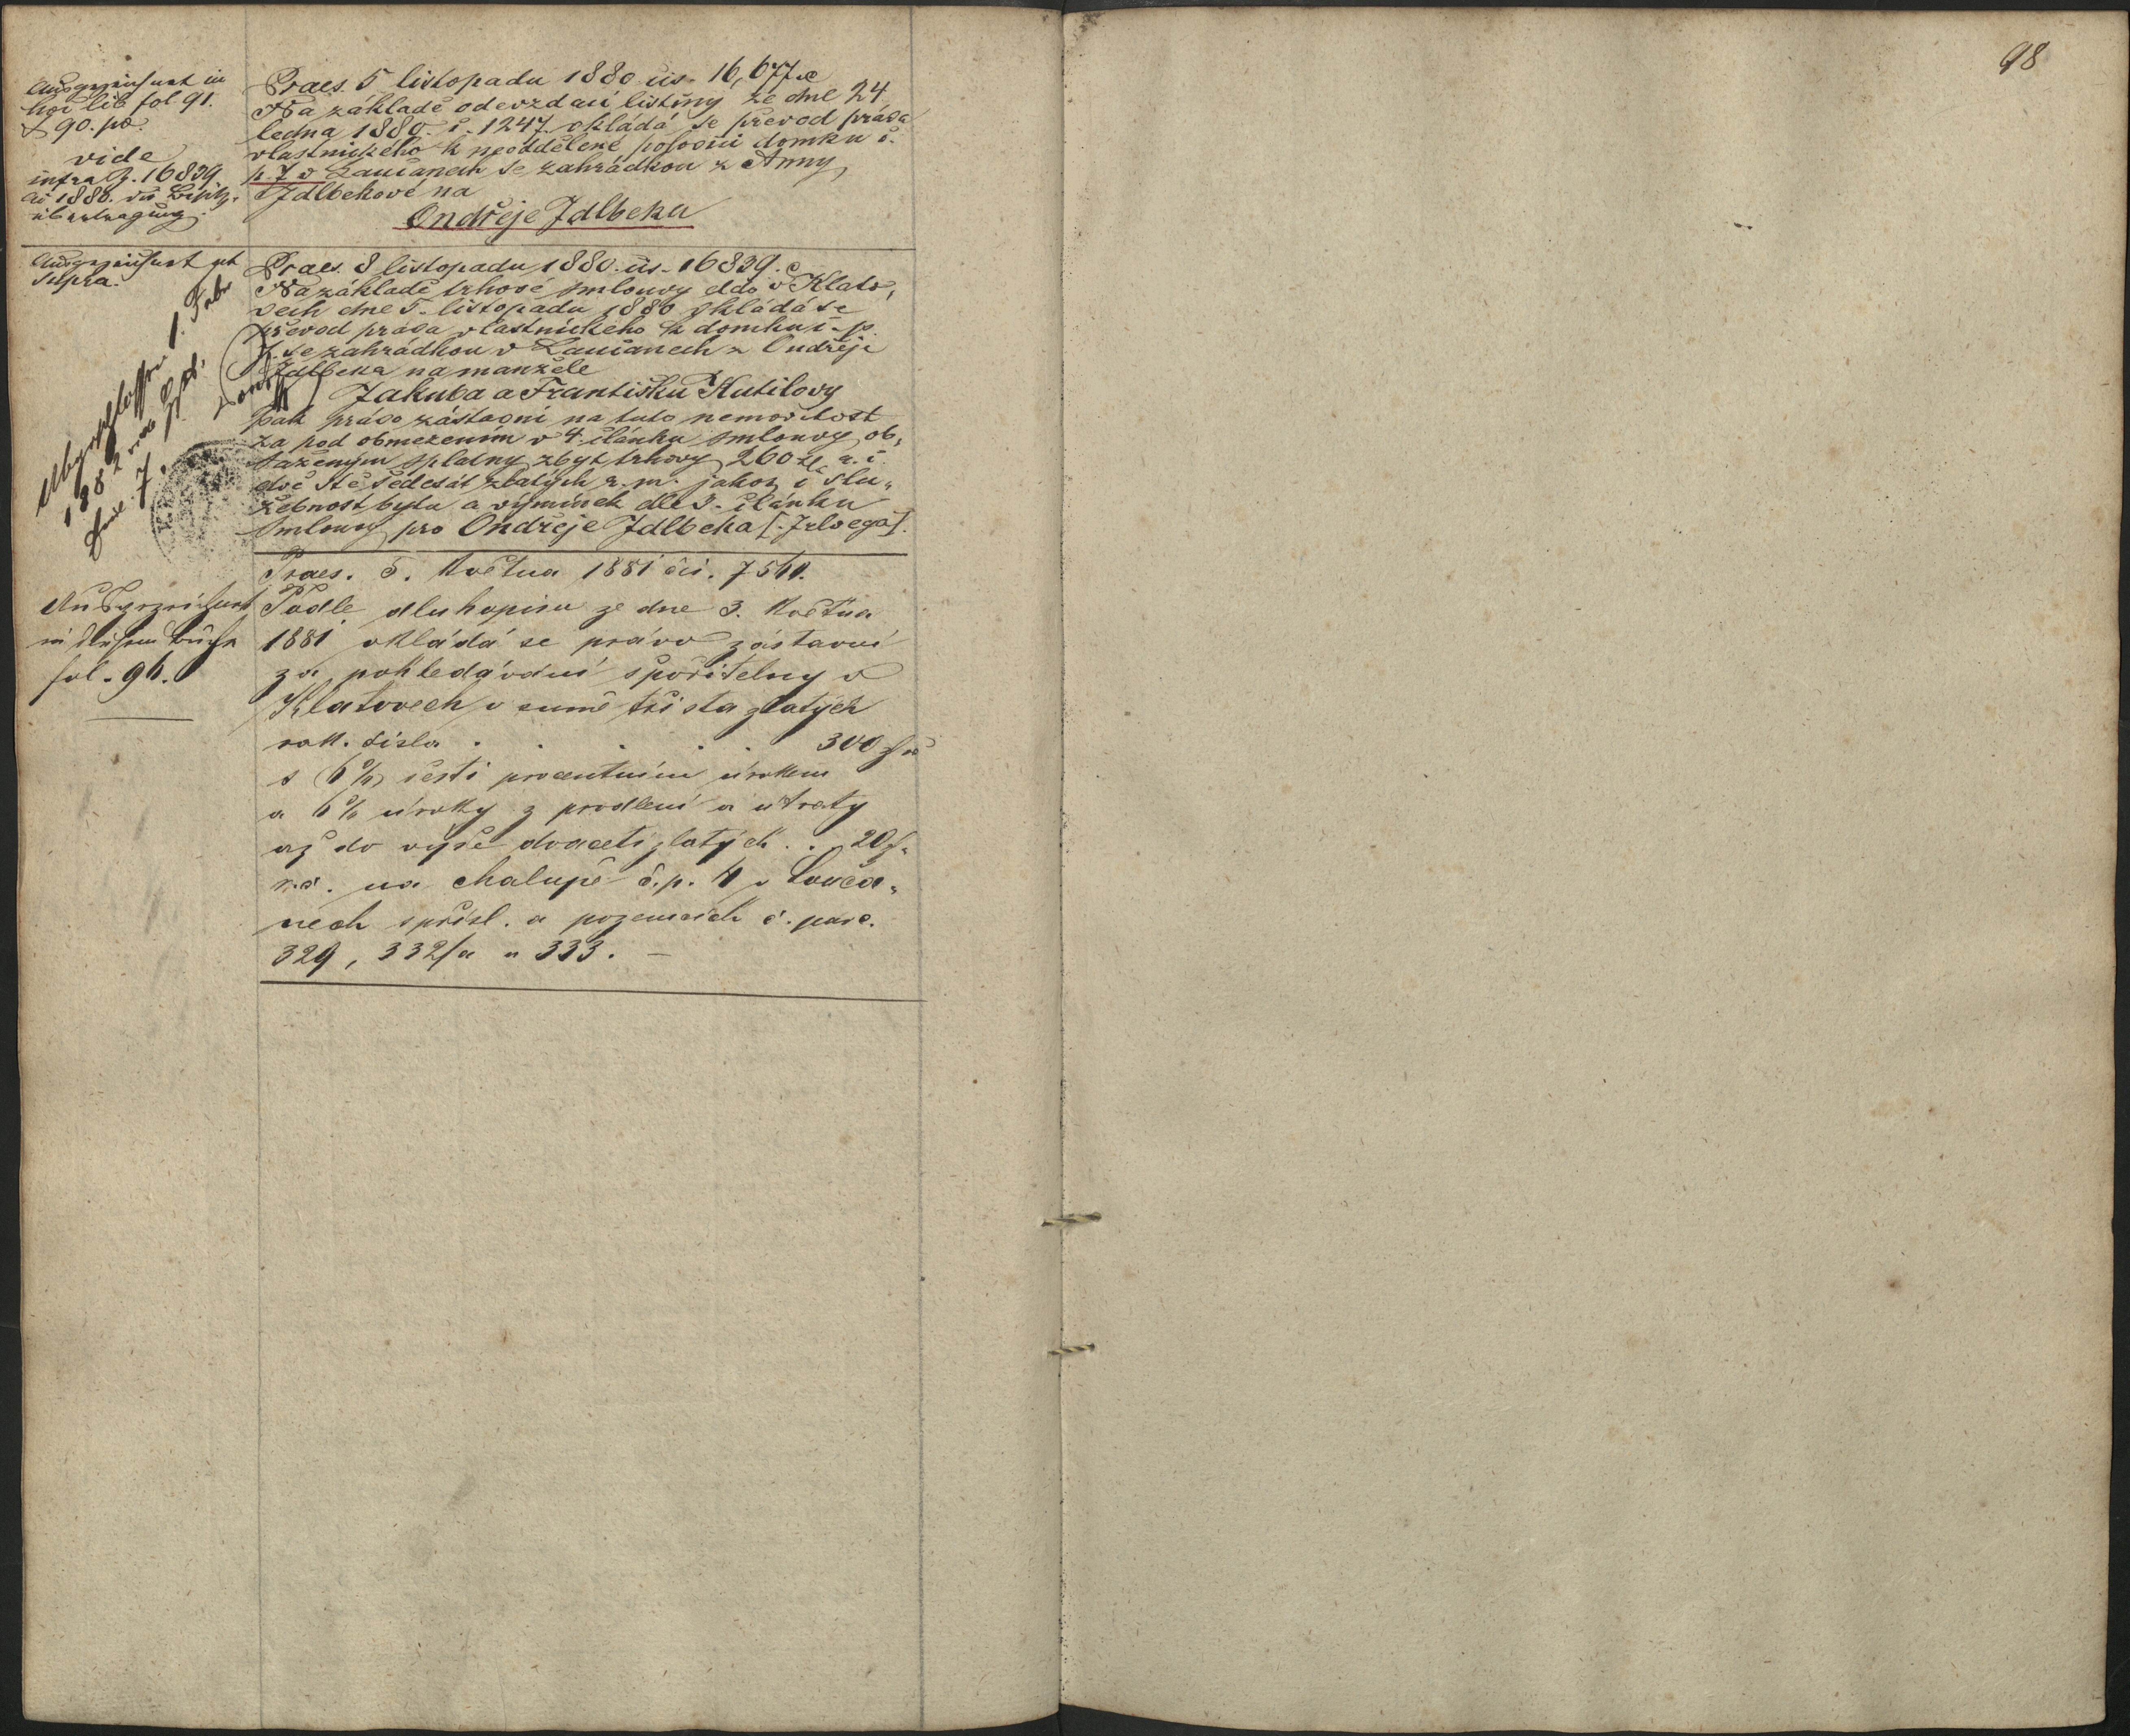 98
Ausgezeichnet in
hoc lib fol 91.
& 90. po.
vide
infra Z. 16839
ao 1880. die Besitz-
übertragung.
Praes. 5 listopadu 1880 čís. 16,677.
Na základě odevzdací listiny ze dne 24
ledna 1880. č. 1247. vkládá se převod práva
vlastnického k neoddělené polovici domku č.
p. 7 v Laučanech se zahrádkou z Anny
Jdlbekové na
Ondřeje Jdlbeka
Ausgezeichnet ut
supra.
Praes. 8 listopadu 1880. čís. 16839.
Na základě trhové smlouvy ddo v Klato,
vech dne 5. listopadu 1880 vkládá se
převod práva vlastnického k domku č. p.
7. se zahrádkou v Laučanech z Ondřeje
Jdlbeka na manžele
Jakuba a Františku Kutilovy
pak právo zástavní na tuto nemovitost
za pod obmezením v 4. článku smlouvy ob,
saženým splatný zbyt trhový 260 zl r. č.
dvě stě šedesát zlatých r. m. jakož i slu,
žebnost bytu a výmínek dle 3. článku
smlouvy pro Ondřeje Jdlbeka
1882
7.
Praes. 5. května 1881 čís. 7560.
Ausgezeichnet
in diesem Buche
fol. 96.
Podle dluhopisu ze dne 3. května
1881 vkládá se právo zástavní
za pohledávání spořitelny v
Klatovech v sumě tři sta zlatých
rak. čísla . . . . . 300 zl
s 6% šesti procentním úrokem
a 6% úroky z prodlení a útraty
až do výše dvaceti zlatých . . 20 zl
r. č. na chalupě č. p. 4 v Louča,
nech s přísl. a pozemcích č. parc.
329, 332/a a 333. —